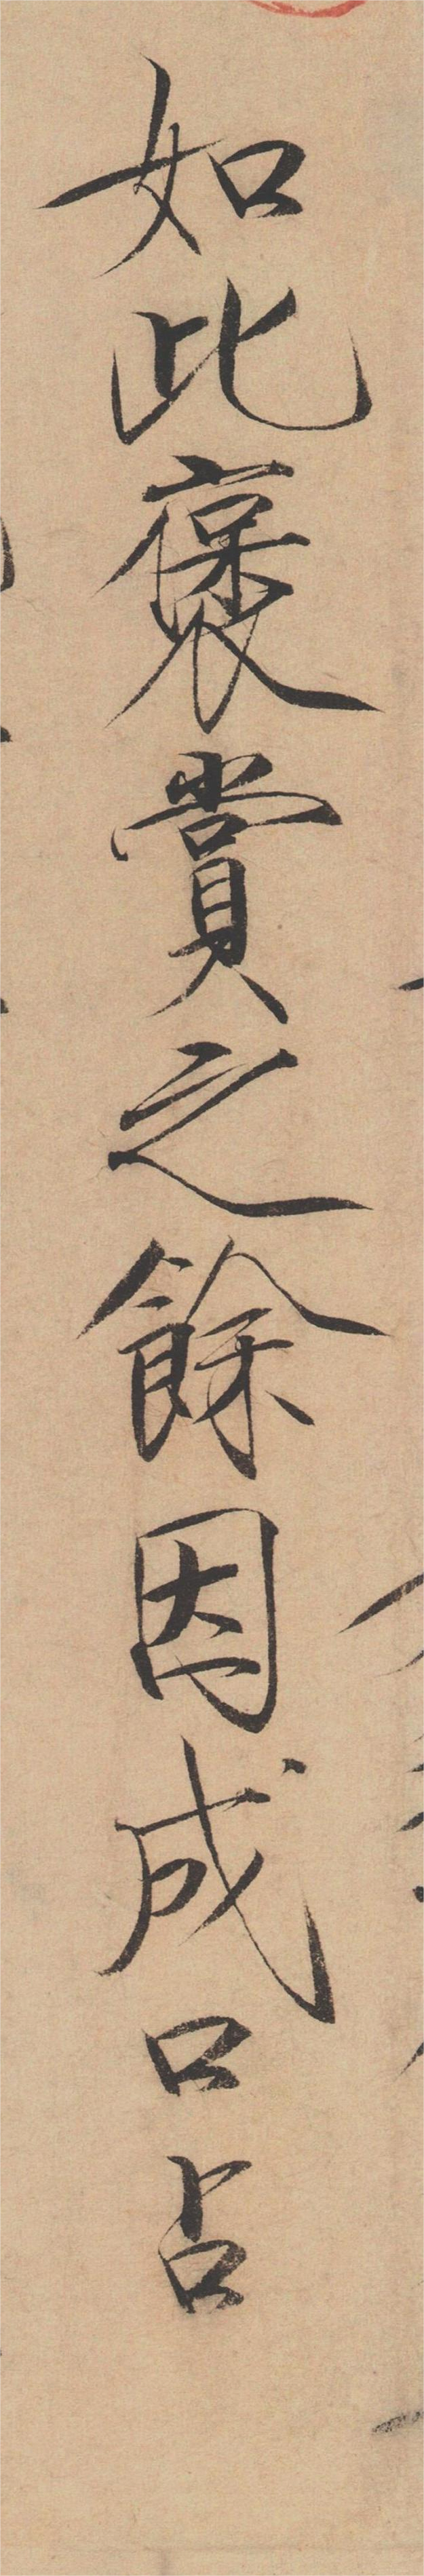 如此褒賞之餘因成口占